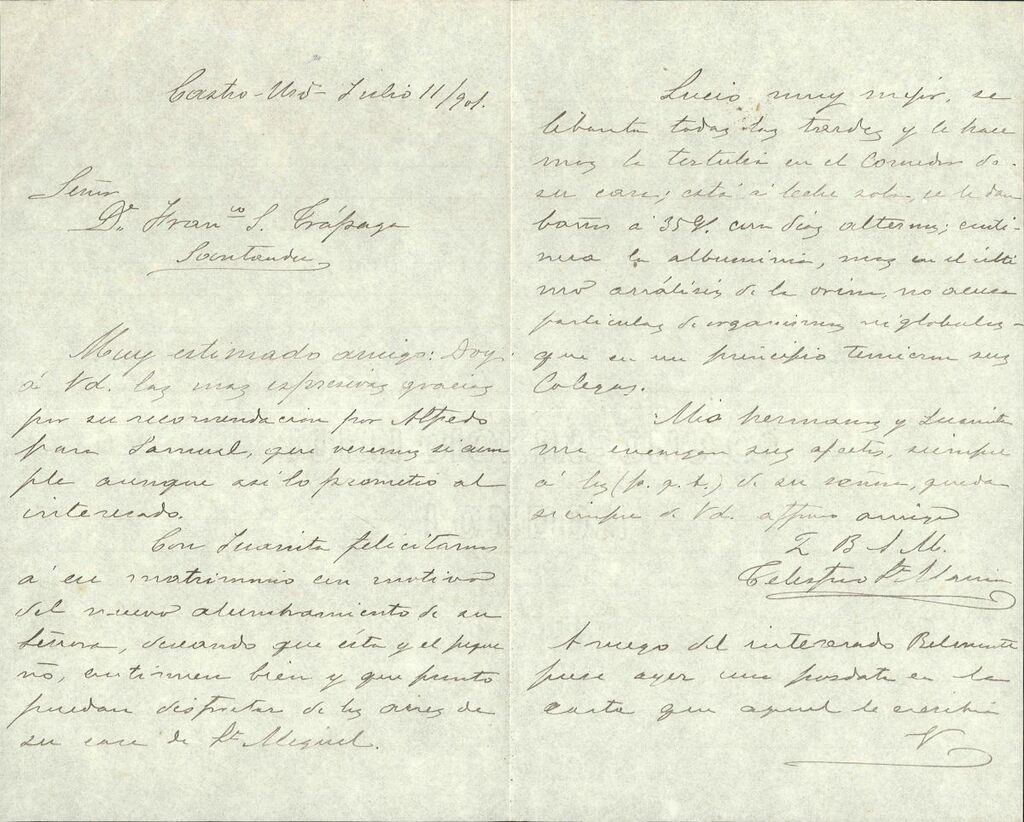 Castro-Urds Julio 11/901.
Señor
Dn. Franco S. Trápaga
Santander
Muy estimado amigo: Doy
á Vd. las mas espresivas gracias
por su recomendacion por Alfredo
para Samuel, que veremos si cum
ple aunque asi lo prometió al
interesado.
Con Juanita felicitamos
á ese matrimonio con motivo
del nuevo alumbramiento de su
señora, deseando que ésta y el peque
ño, continuen bien y que pronto
puedan disfrutar de los aires de
su casa de Sn. Miguel.
Lucio muy mejor, se
libanta todas las tardes y le hace
mos la tertulia en el comedor de
su casa; está á leche sola, se le dan
baños á 35°. con dias alternos; conti-
nua la albuminia, mas en el ulti
mo análisis de la orina, no acusa
particulas de organismos ni globulos-
que en un principio temieron sus
Colegas.
Mis hermanas y Juanita
me encargan sus afectos, siempre
á los (p. q. b.) de su señora, queda
siempre de Vd. affmo amigo
Q B S M.
Celestino
A ruego del interesado Belmonte
puse ayer una posdata en la
carta que aquel le escribia
V